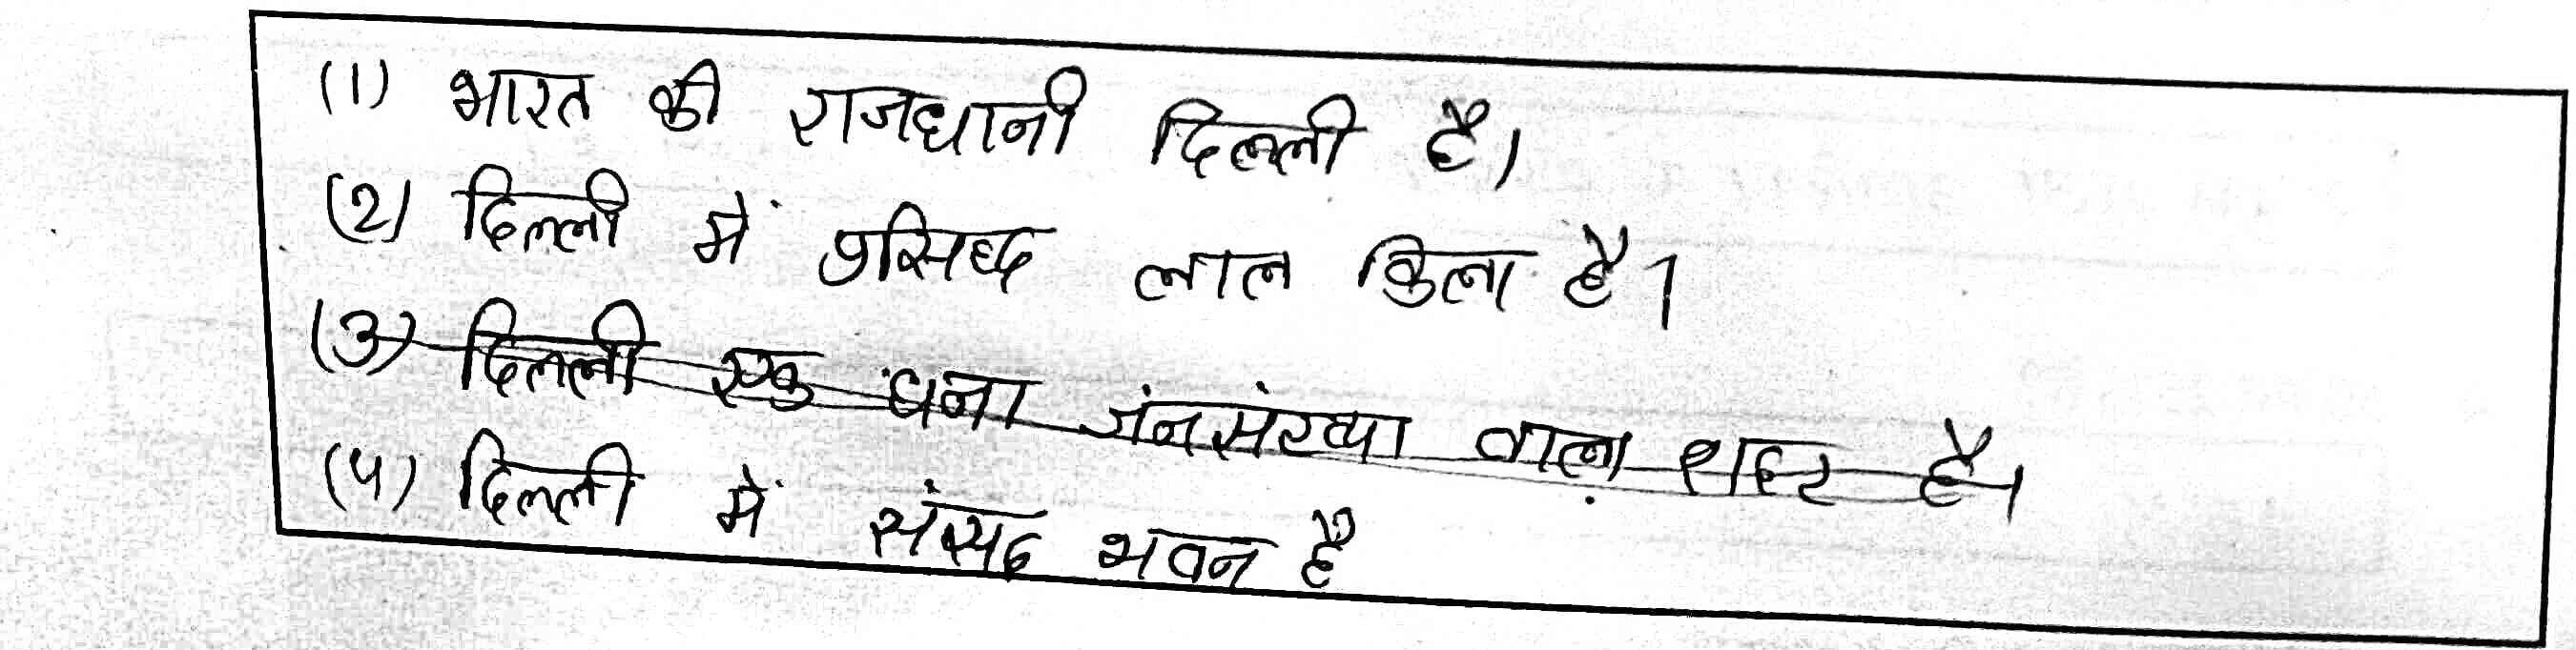 (1) भारत की राजधानी दिल्ली है।
(2) दिल्ली में प्रसिध्द लाल किला है।
(3) दिल्ली एक घना जंनसंख्या वाला शहर है।
(4) दिल्ली में संसद भवन है